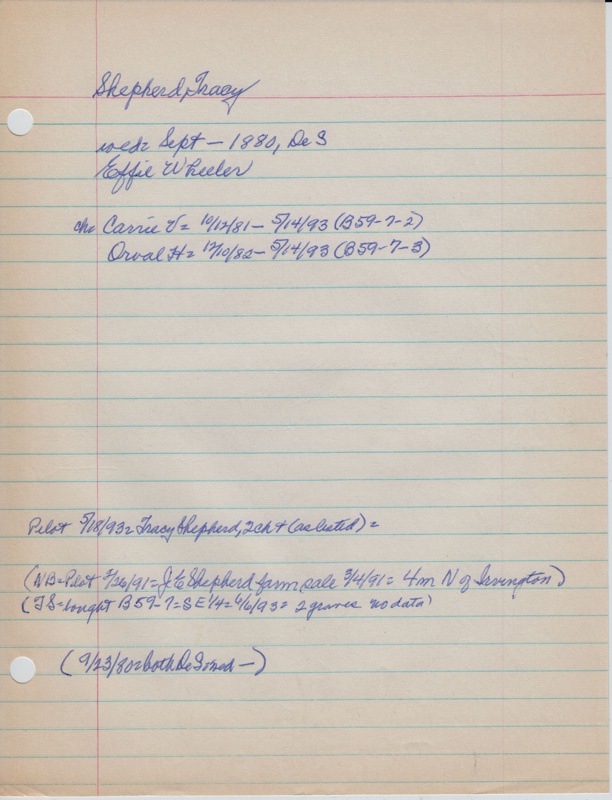 Shepherd, Tracy
wed= Sept - 1880, De S
Effie Wheeler
ch= Carrie V= 10/12/81 - 5/14/93 (B59-7-2)
Orval H= 12/10/82 - 5/14/93 (B59-7-3)
Pilot 5/18/93= Tracy Shepherd, 2ch + (as listed) =
(NB=Pilot 2/26/91= J E Shepherd farm sale 3/4/91= 4m N of Irvington)
(TS=bought B59-7=SE1/4=6/6/93= 2 graves no data)
(9/23/80= both De Sowed -)